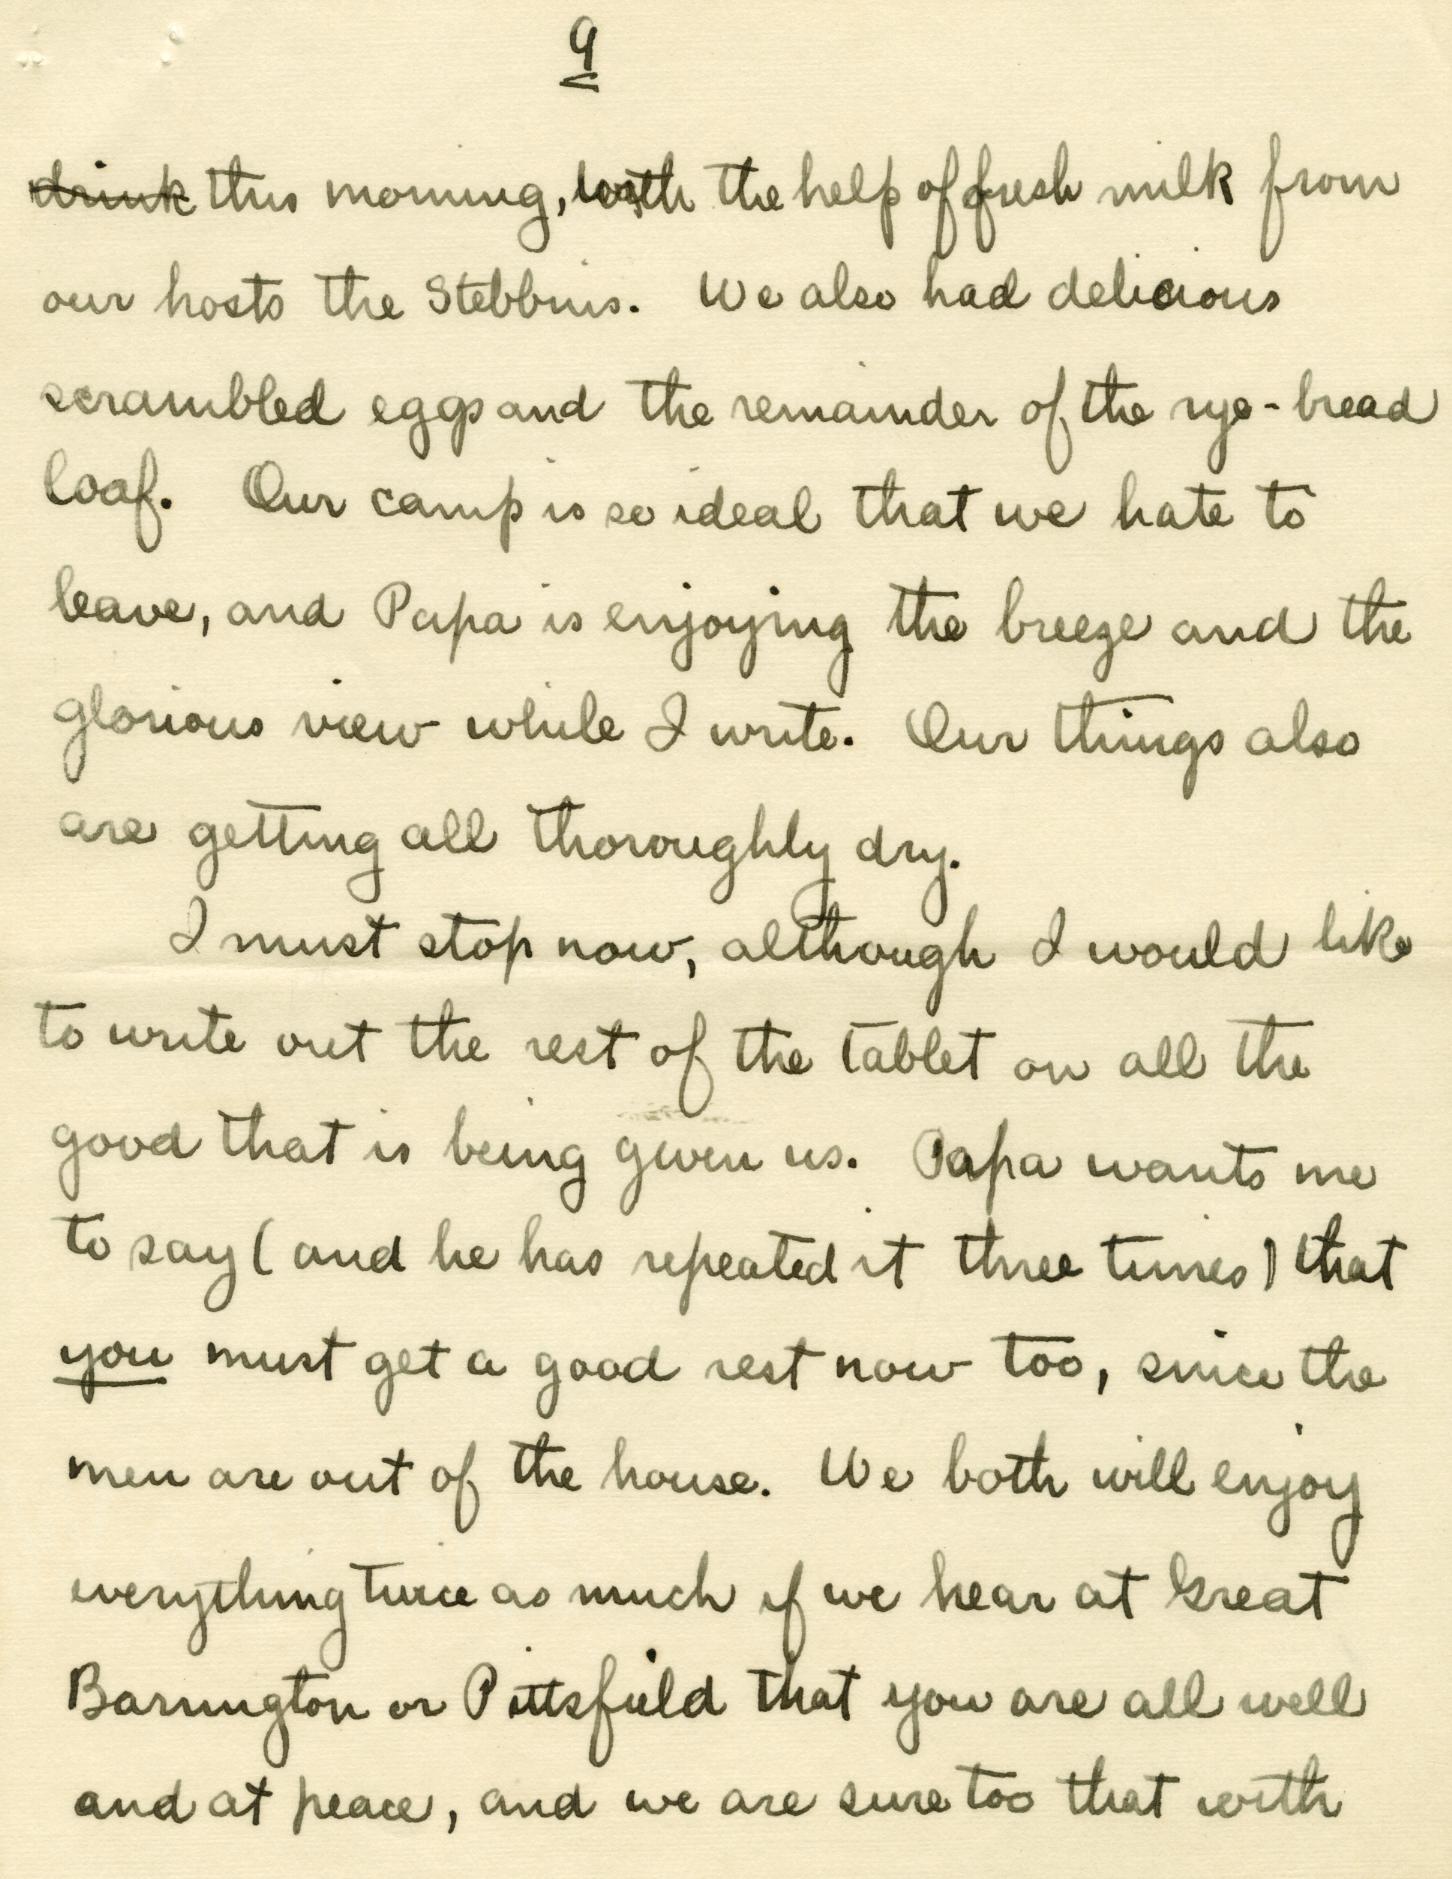 9
drink this morning, with the help of fresh milk from
our hosts the Stebbins. We also had delicious
scrambled eggs and the remainder of the rye-bread
loaf. Our camp is so ideal that we hate to
leave, and Papa is enjoying the breeze and the
glorious view while I write. Our things also
are getting all thoroughly dry.
I must stop now, although I would like
to write out the rest of the tablet on all the
good that is being given us. Papa wants me
to say (and he has repeated it three times) that
you must get a good rest now too, since the
men are out of the house. We both will enjoy
everything twice as much if we hear at Great
Barrington or Pittsfield that you are all well
and at peace, and we are sure too that with